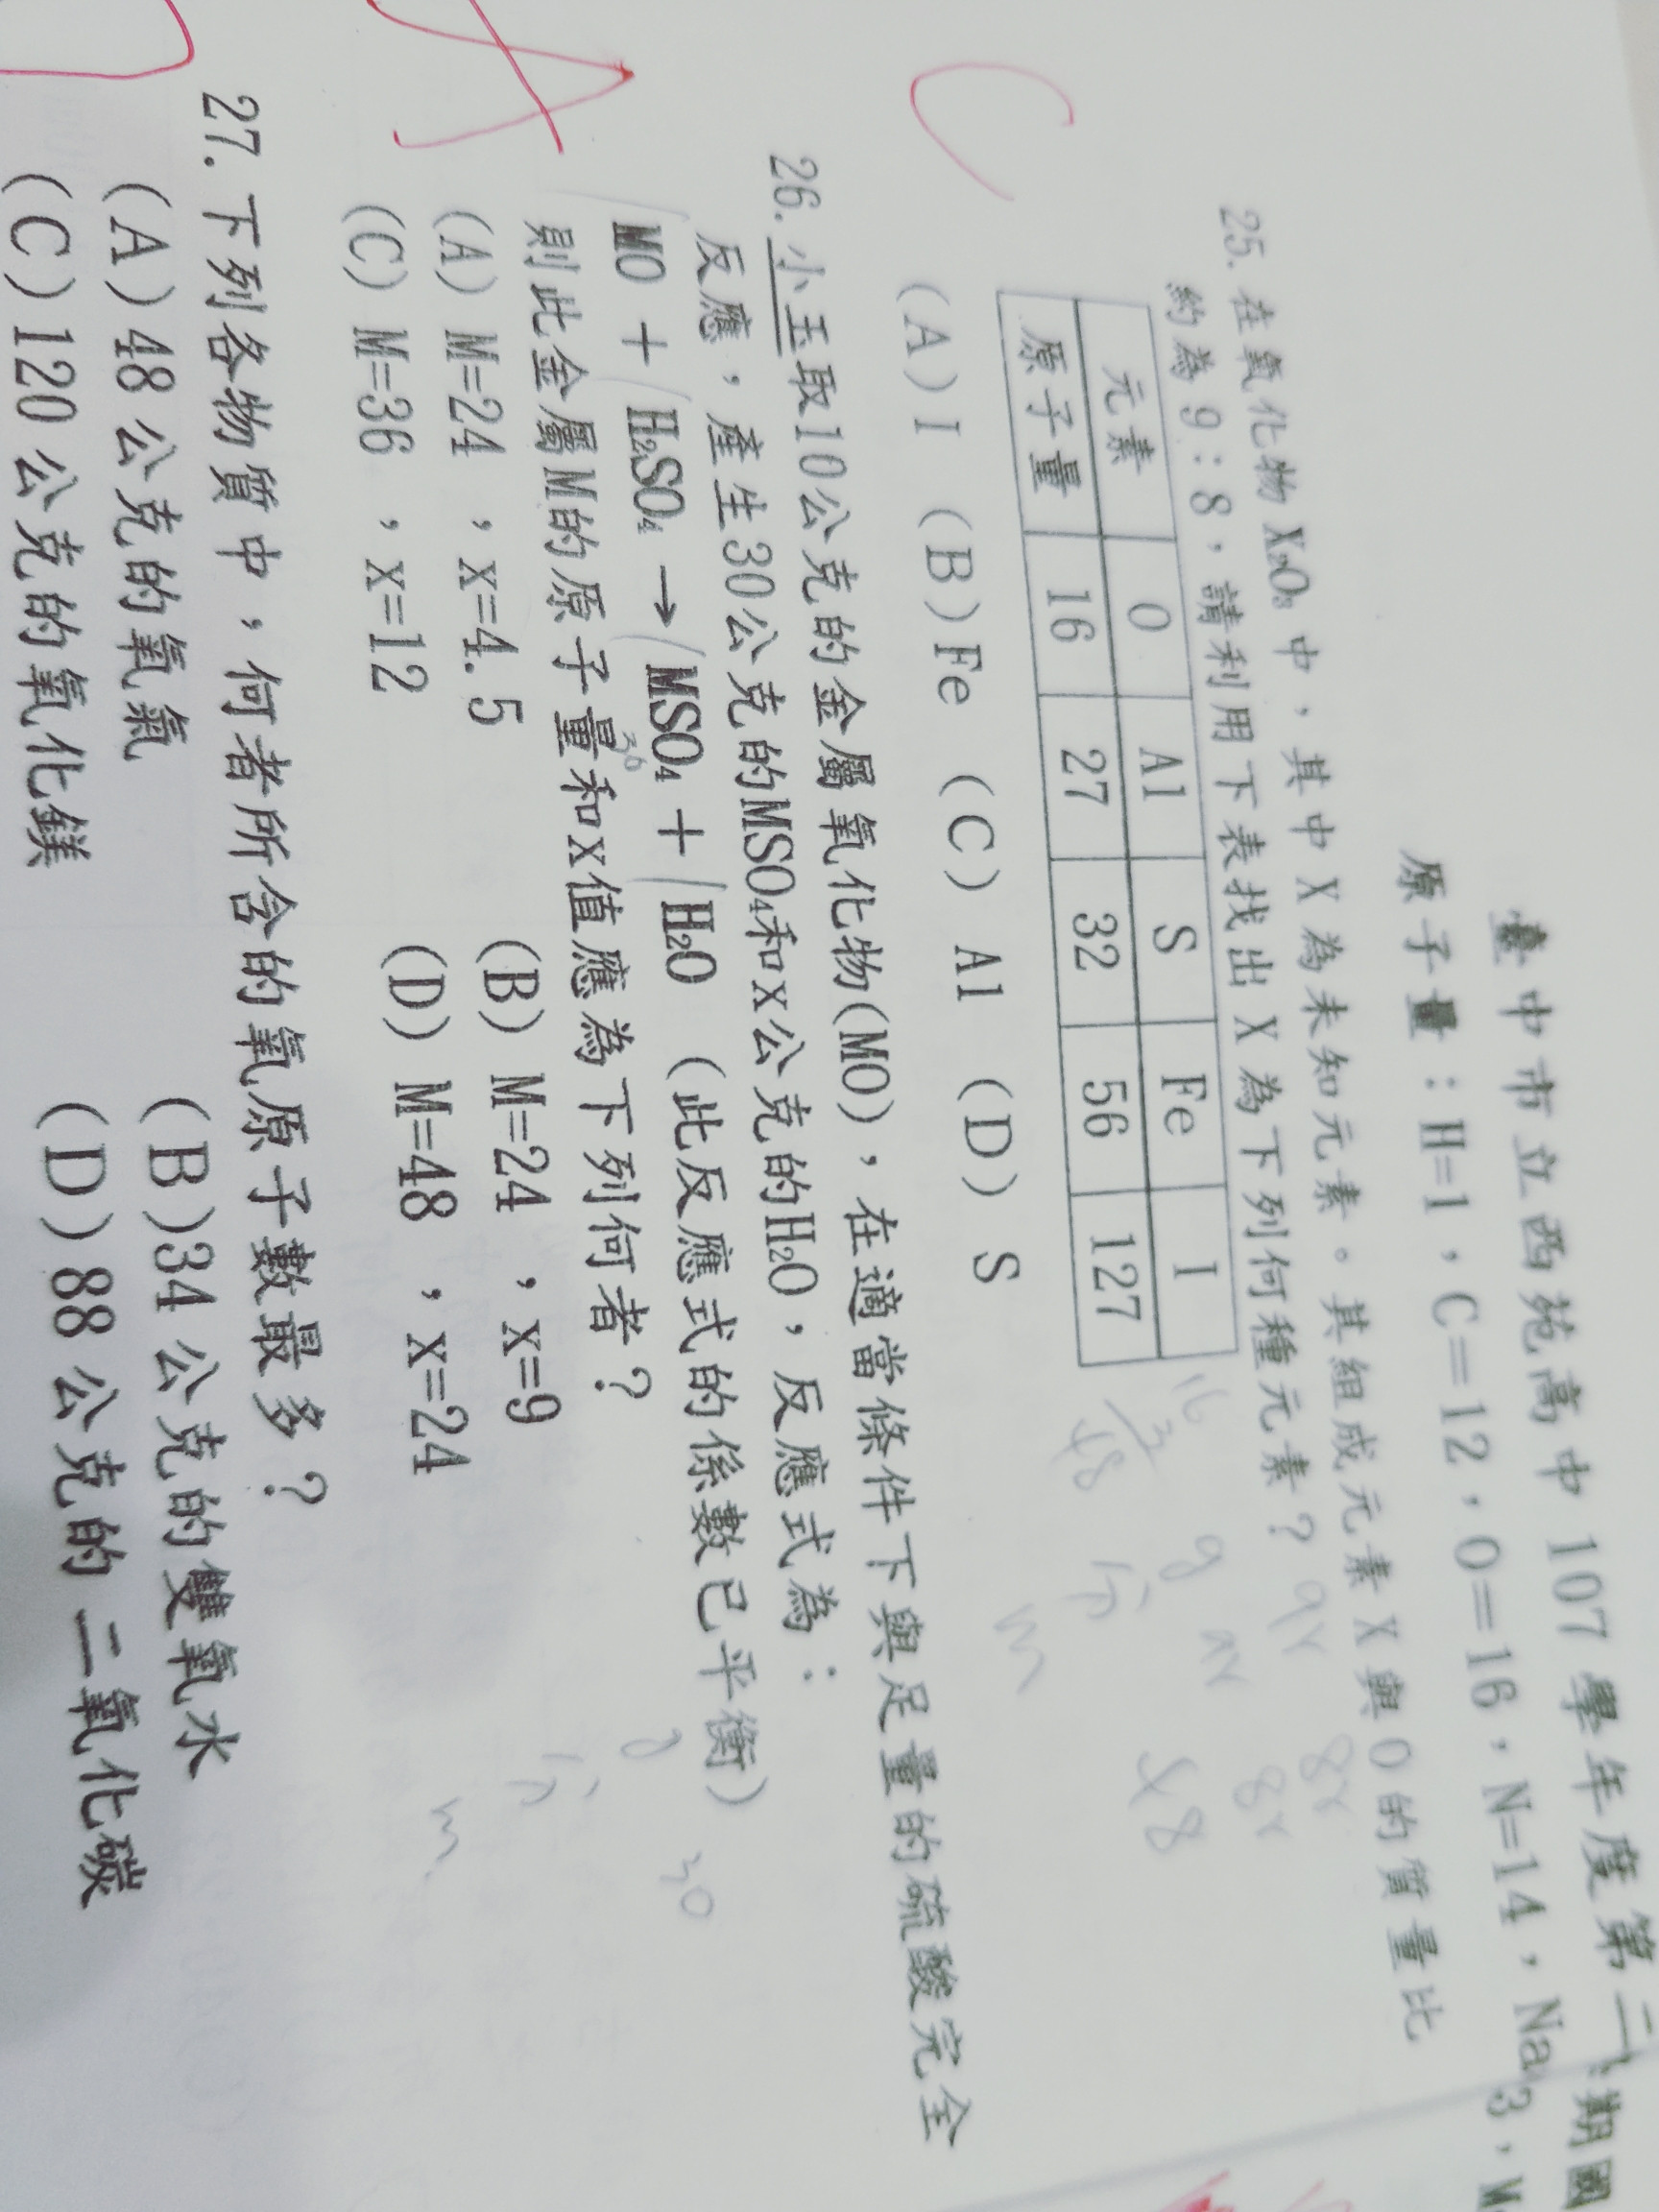 臺中市立西苑高中 107 學年度第二
期國
原子量：H=1，C=12，O=16，N=14，Na
3，M
25.在氧化物 X₂O₃ 中，其中 X 為未知元素。其組成元素 X 與 O 的質量比
約為 9：8，請利用下表找出 X 為下列何種元素？
元素 O Al S Fe I
原子量 16 27 32 56 127
(A)I (B)Fe (C) Al (D) S
C
26.小玉取10公克的金屬氧化物(MO)，在適當條件下與足量的硫酸完全
反應，產生30公克的MSO₄和X公克的H₂O，反應式為：
MO + H₂SO₄ → MSO₄ + H₂O （此反應式的係數已平衡）
則此金屬M的原子量和X值應為下列何者？
(A) M=24 ，x=4.5 (B) M=24 ，x=9
(C) M=36 ，x=12 (D) M=48 ，x=24
A
27.下列各物質中，何者所含的氧原子數最多？
(A)48 公克的氧氣 (B)34 公克的雙氧水
(C)120 公克的氧化鎂 (D)88 公克的 二氧化碳
16
3
48
9r 8r
48
m
30
m